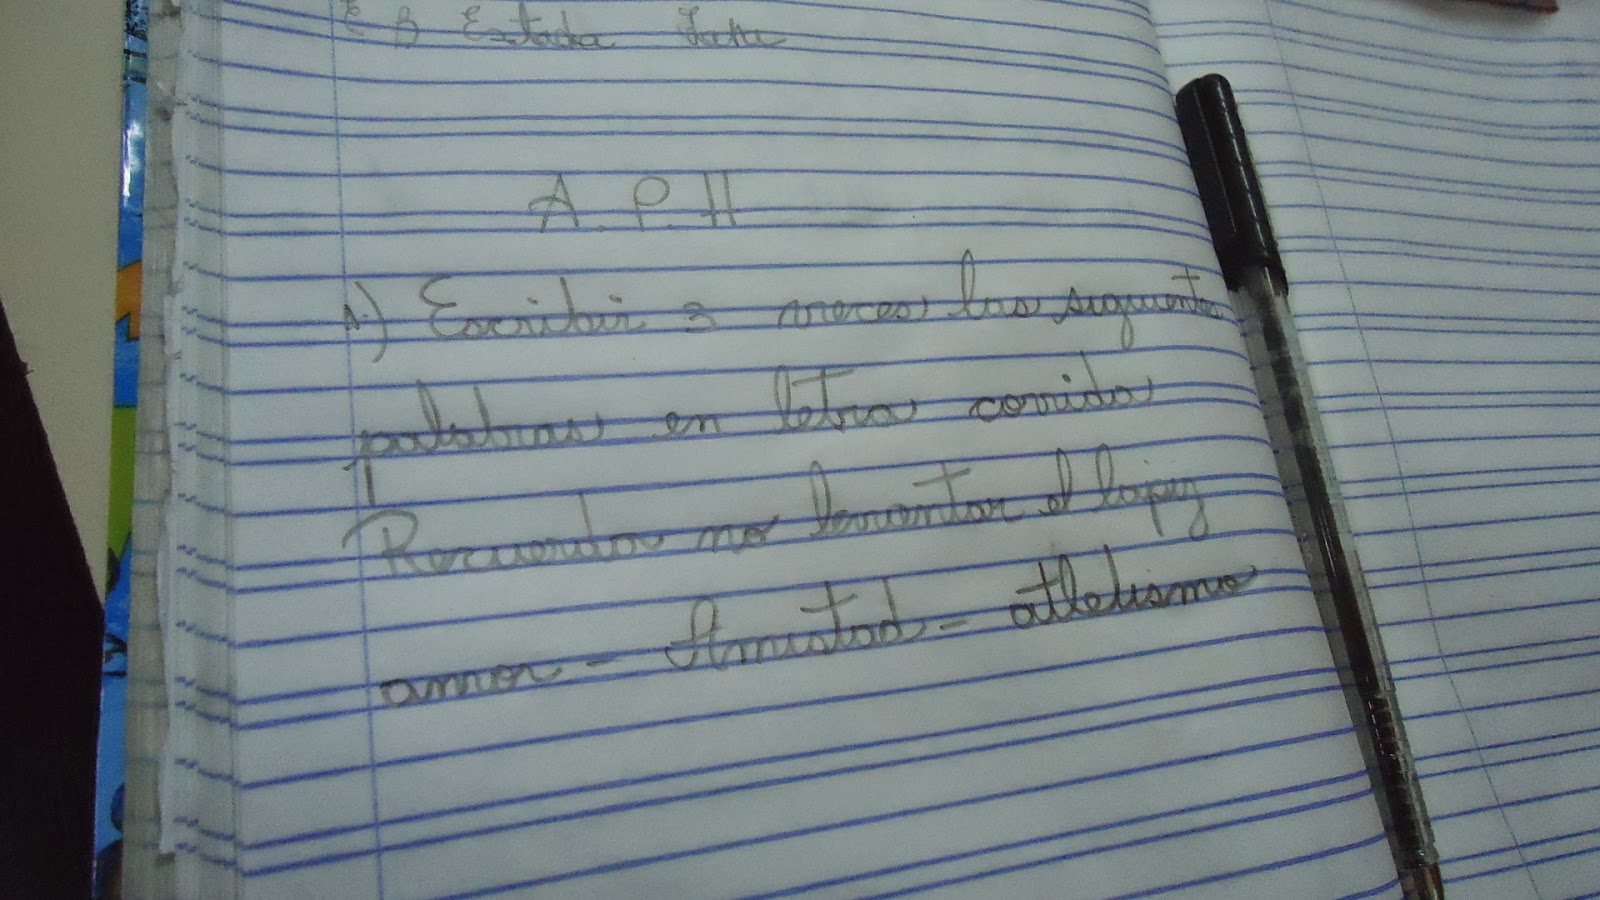 E B Estada
A.P.H
A.) Escribir 3 veces las siguientes
palabras en letra corrida
Recuerda no levantar el lapiz
amor - Amistad - atletismo